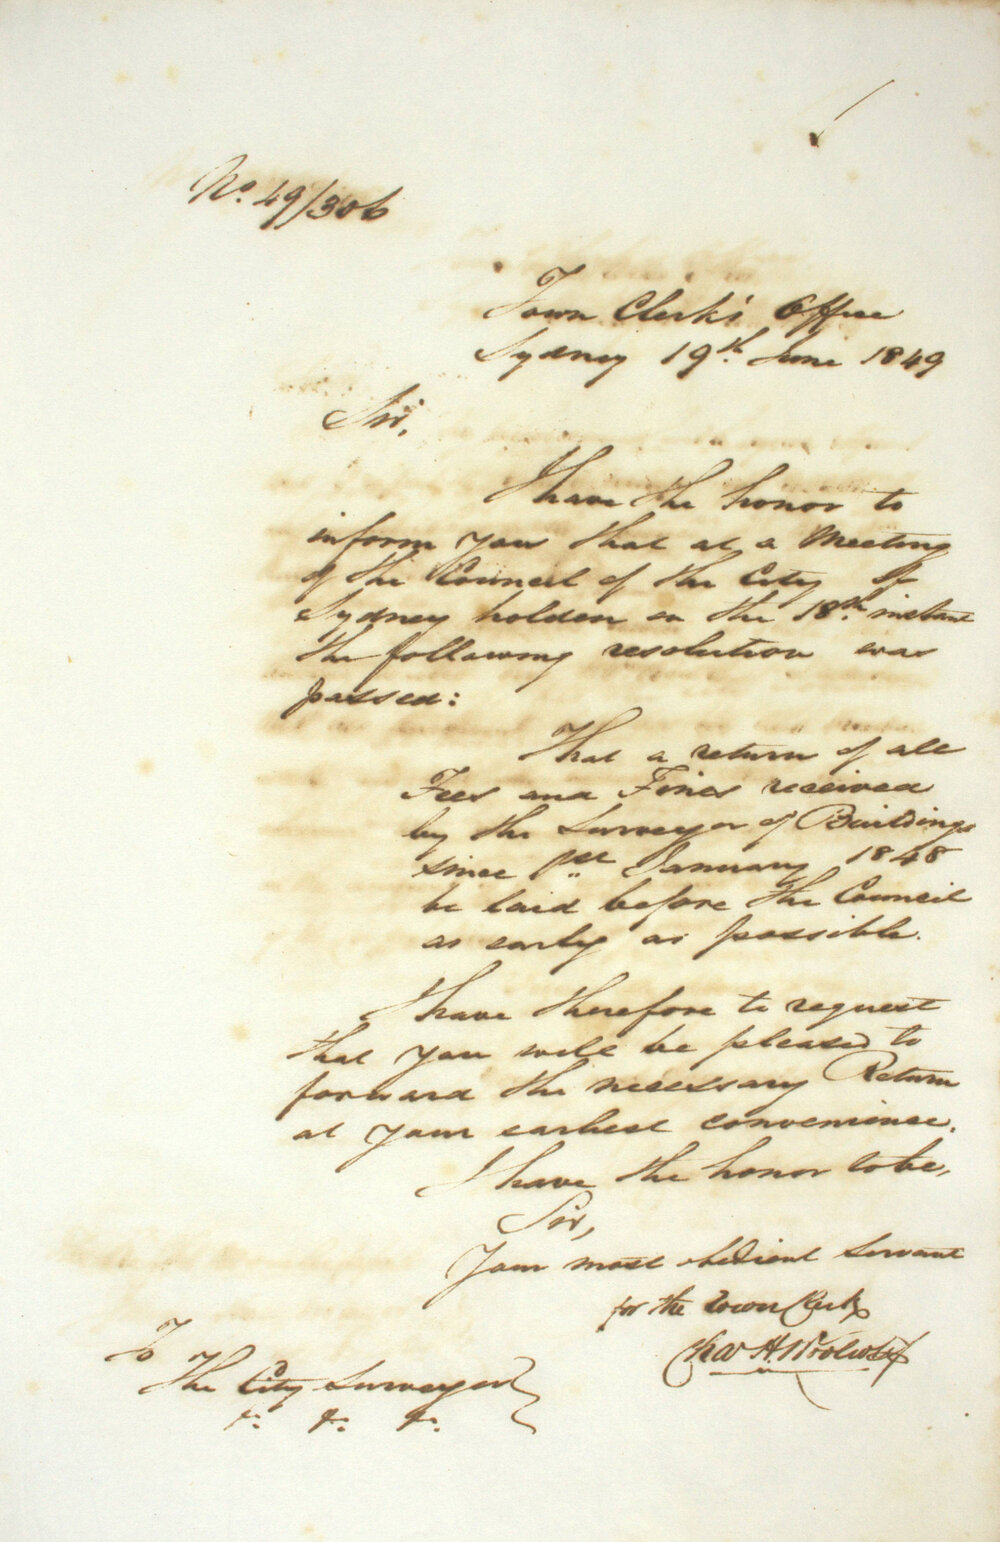 No. 49/306
Town Clerk's Office
Sydney 19th June 1849
Sir,
I have the honor to
inform you that at a Meeting
of the Council of the City of
Sydney holden on the 18th instant
the following resolution was
passed:
That a return of all
Fees and Fines received
by the Surveyor of Buildings
since 1st January 1848
be laid before the Council
as early as possible.
I have therefore to request
that you will be pleased to
forward the necessary Return
at your earliest convenience.
I have the honor to be,
Sir,
Your most obedient Servant
for the Town Clerk
Chas H.
To
The City Surveyor
&c. &c. &c.